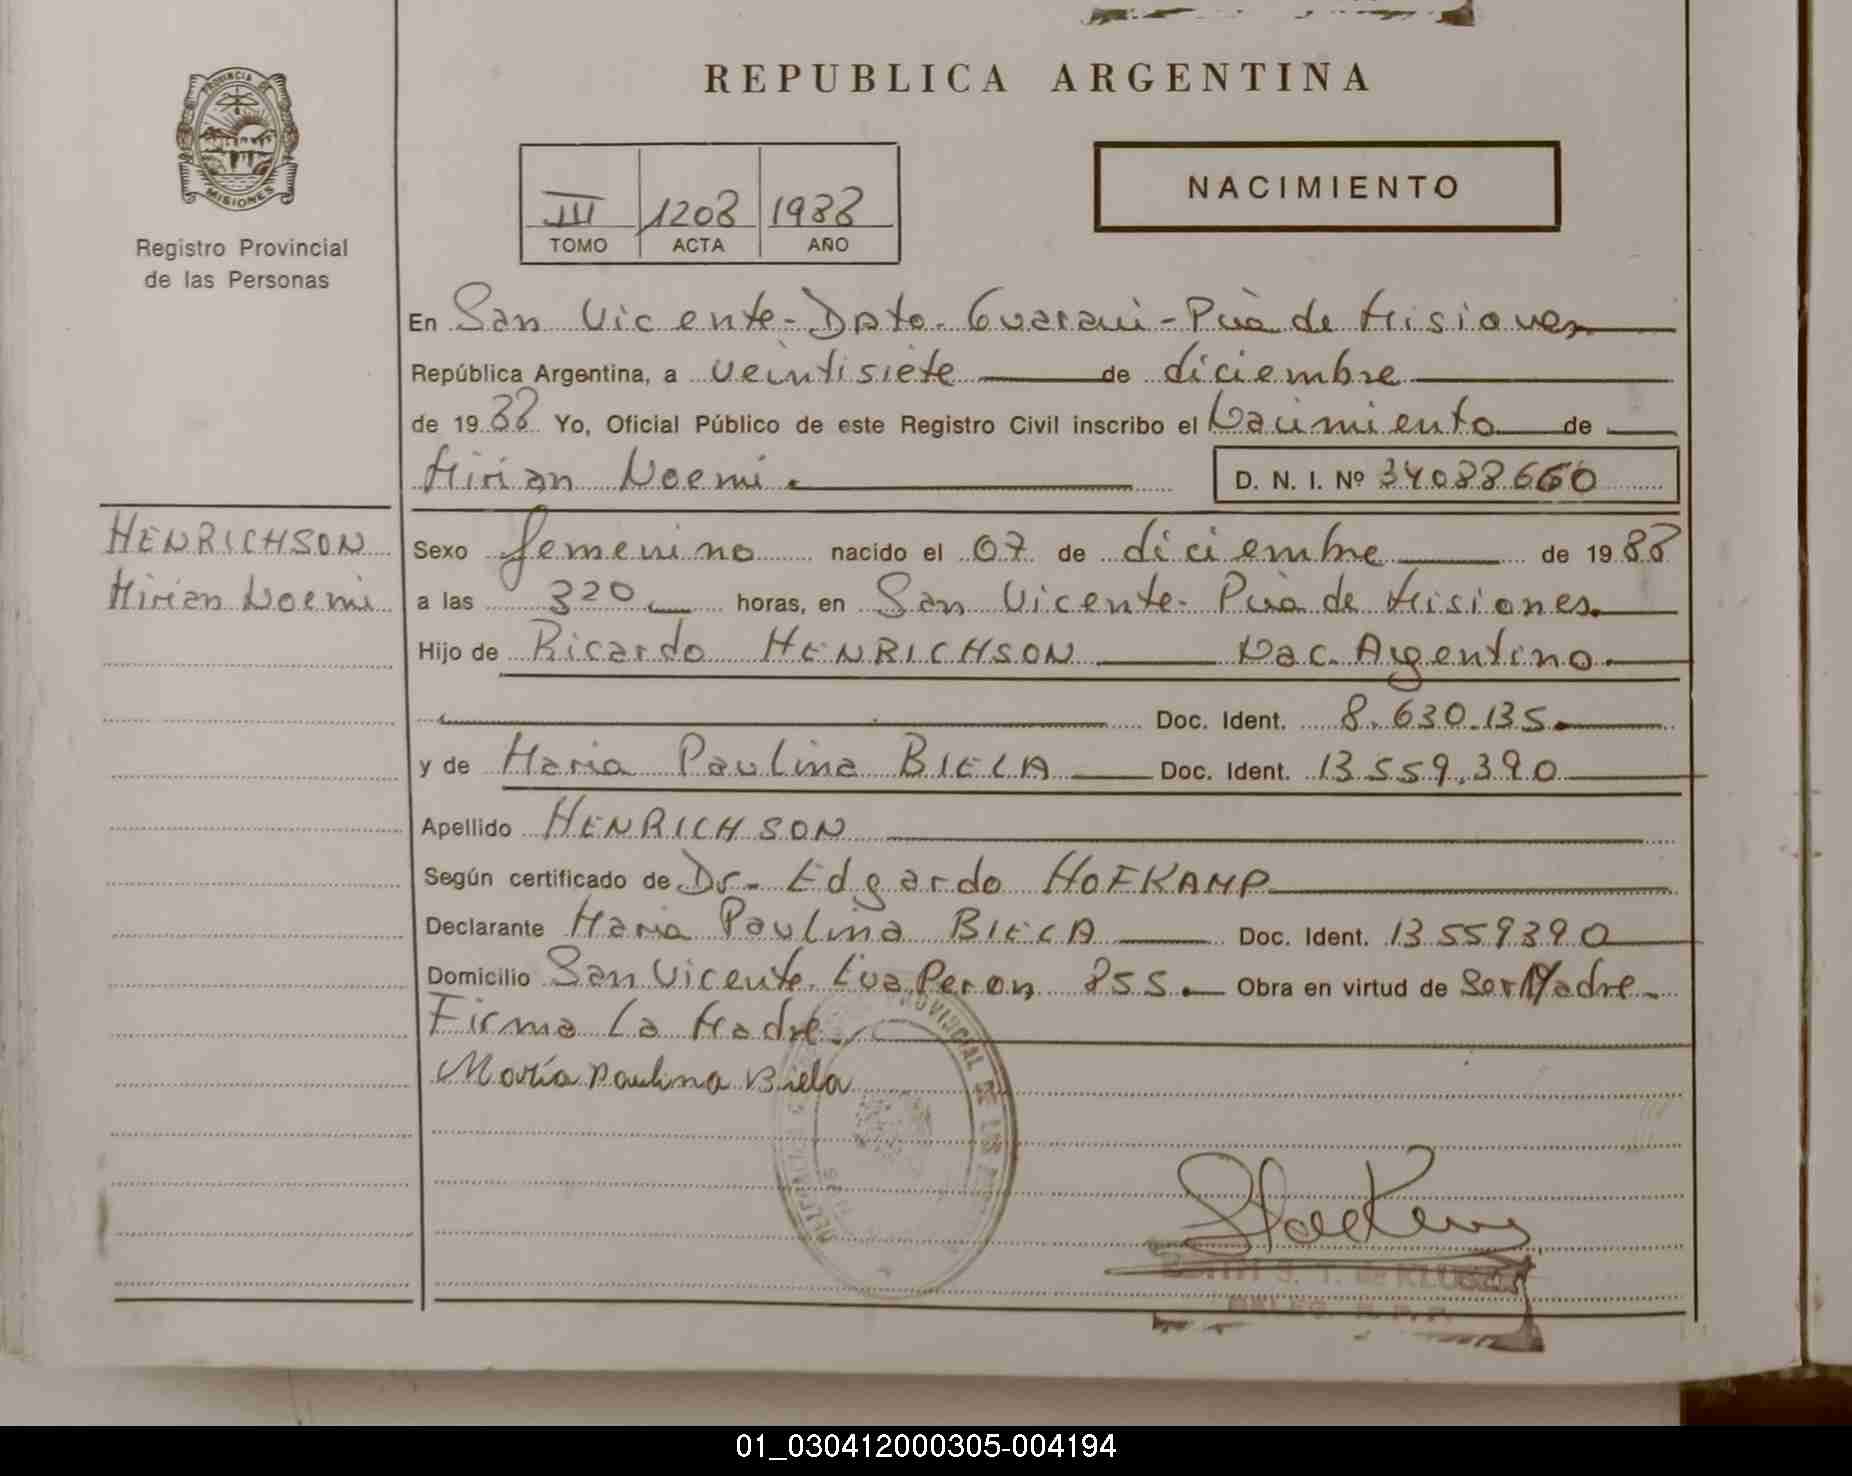 REPUBLICA ARGENTINA
PROVINCIA DE MISIONES
Registro Provincial
de las Personas
III 1208 1988
TOMO ACTA AÑO
NACIMIENTO
En San Vicente - Dpto. Guaraní - Pcia de Misiones
República Argentina, a veintisiete de diciembre
de 1988 Yo, Oficial Público de este Registro Civil inscribo el Nacimiento de
Mirian Noemi. D. N. I. Nº 34088660
HENRICHSON
Mirian Noemi
Sexo femenino nacido el 07 de diciembre de 1988
a las 320 horas, en San Vicente - Pcia de Misiones.
Hijo de Ricardo HENRICHSON Nac. Argentino.
Doc. Ident. 8.630.135.
y de Maria Paulina BIELA Doc. Ident. 13.559.390
Apellido HENRICHSON
Según certificado de Dr. Edgardo HOFKAMP
Declarante Maria Paulina BIELA Doc. Ident. 13559390
Domicilio San Vicente. Eva Peron 855. Obra en virtud de Ser Madre.
Firma La Madre.
María Paulina Biela
PROVINCIAL DE LAS
S. T. de
01_030412000305-004194